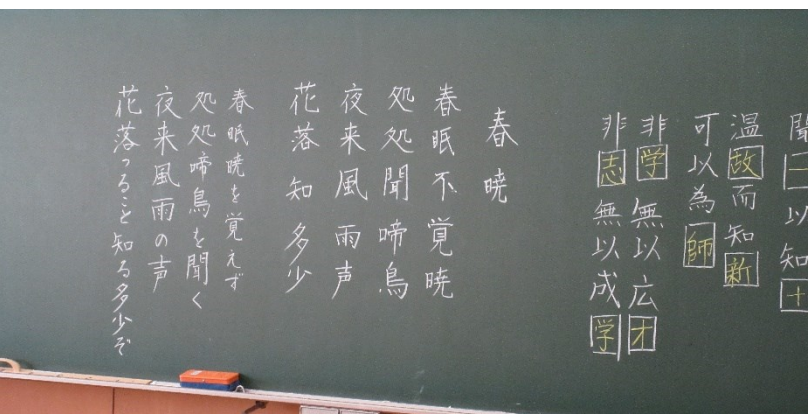 聞一以知十
温故而知新
可以為師
非学無以広才
非志無以成学
春暁
春眠不覚暁
処処聞啼鳥
夜来風雨声
花落知多少
春眠暁を覚えず
処処啼鳥を聞く
夜来風雨の声
花落つること知る多少ぞ